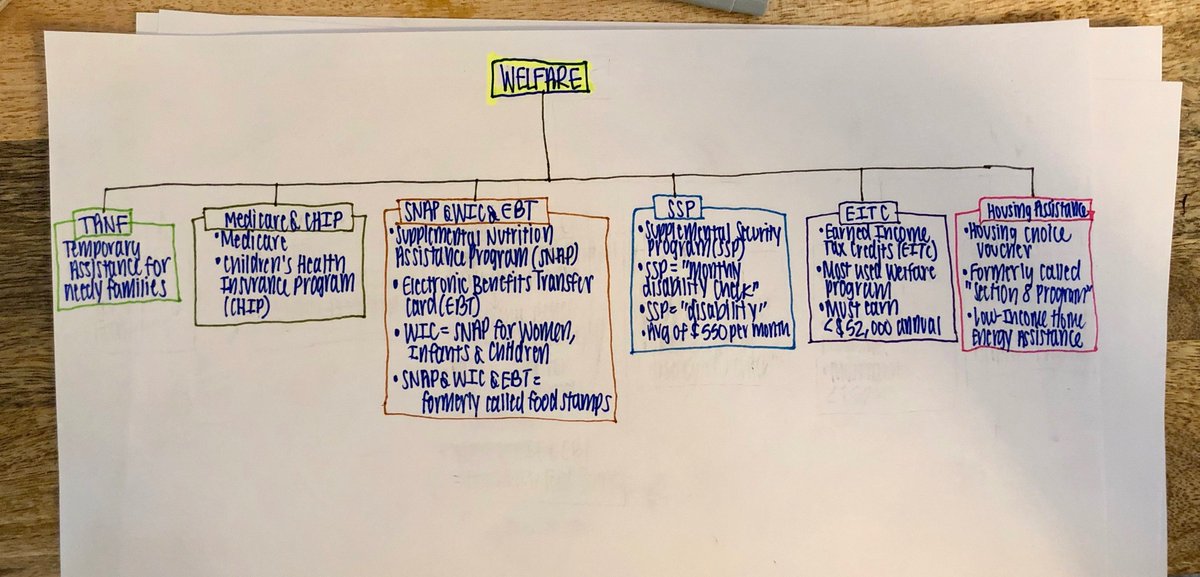 WELFARE
TANF
Temporary
Assistance for
needy families
Medicare & CHIP
• Medicare
• Children's Health
Insurance Program
(CHIP)
SNAP & WIC & EBT
• Supplemental Nutrition
Assistance Program (SNAP)
• Electronic Benefits Transfer
Card (EBT)
• WIC = SNAP for Women,
Infants & Children
• SNAP & WIC & EBT =
formerly called food stamps
SSP
• Supplemental Security
Program (SSP)
• SSP = "monthly
disability check"
• SSP = "disability"
• Avg of $550 per month
EITC
• Earned Income
Tax Credits (EITC)
• Most used welfare
program
• Must earn
< $52,000 annual
Housing Assistance
• Housing choice
voucher
• Formerly called
"Section 8 Program"
• Low-Income Home
Energy Assistance